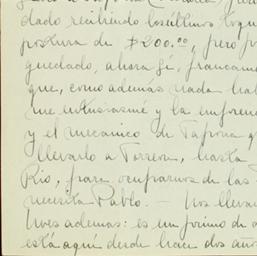 dado recibiendo los últimos toques
postura de $200.00, pero po
quedado, ahora sí, francame
que, como ademas nada ha
me entusiasmé y la emprend
y el mecanico de Tapona q
llevarlo a Torreon, hasta
Rio, para ocuparnos de las
necesita Pablo. — Nos lleva
Uves ademas: es un primo de
está aqui desde hace dos años